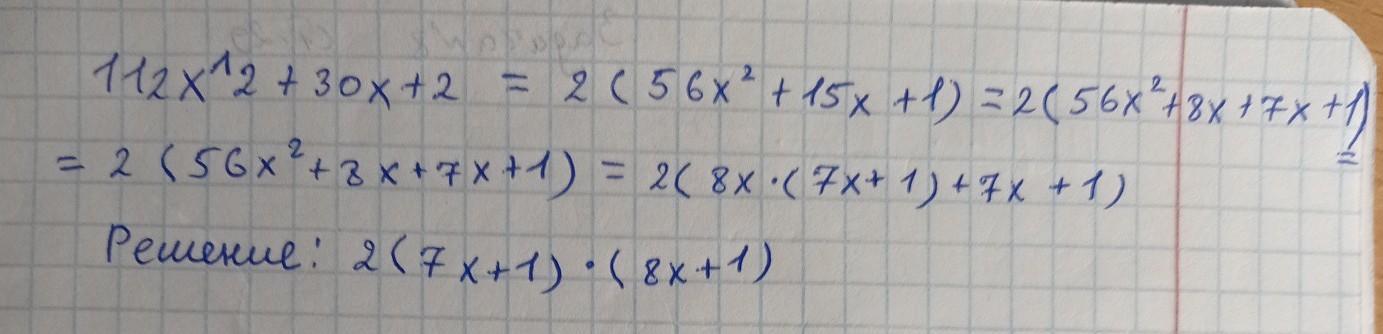 112x^12 + 30x + 2 = 2 ( 56x² + 15x + 1) = 2(56x² + 8x + 7x + 1) =
= 2 (56x² + 8x + 7x + 1) = 2( 8x · ( 7x + 1) + 7x + 1)
Решение: 2 ( 7x + 1) · ( 8x + 1)